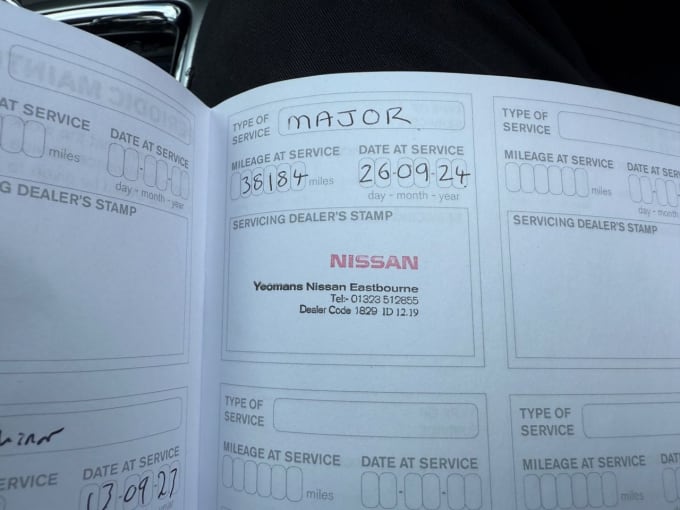 AT SERVICE
DATE AT SERVICE
miles
day - month - year
G DEALER'S STAMP
ERVICE
DATE AT SERVICE
TYPE OF SERVICE MAJOR
MILEAGE AT SERVICE DATE AT SERVICE
38184 miles 26-09-24
day - month - year
SERVICING DEALER'S STAMP
NISSAN
Yeomans Nissan Eastbourne
Tel:- 01323 512855
Dealer Code 1829 ID 12.19
TYPE OF SERVICE
MILEAGE AT SERVICE DATE AT SERVICE
miles
TYPE OF SERVICE
MILEAGE AT SERVICE DATE AT SER
miles
day - month
SERVICING DEALER'S STAMP
TYPE OF SERVICE
MILEAGE AT SERVICE DAT
miles